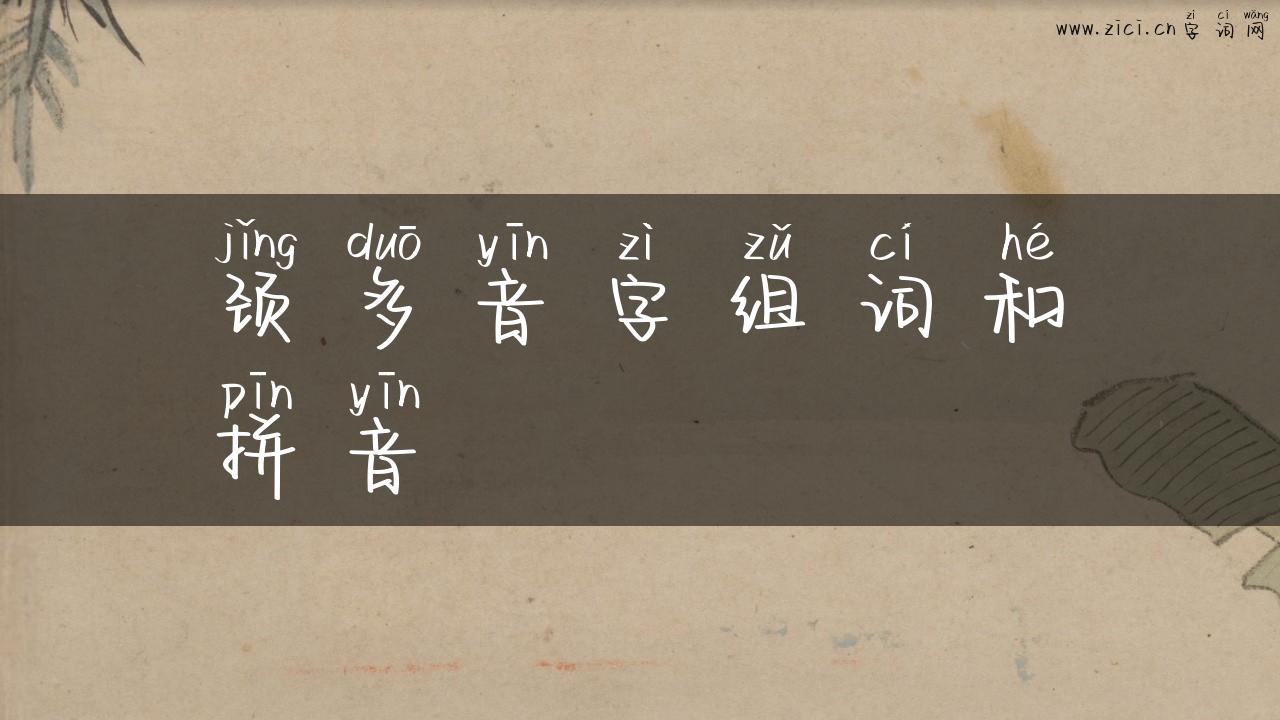 zì cí wǎng
www.zici.cn 字词网
jǐng duō yīn zì zǔ cí hé
颈多音字组词和
pīn yīn
拼音